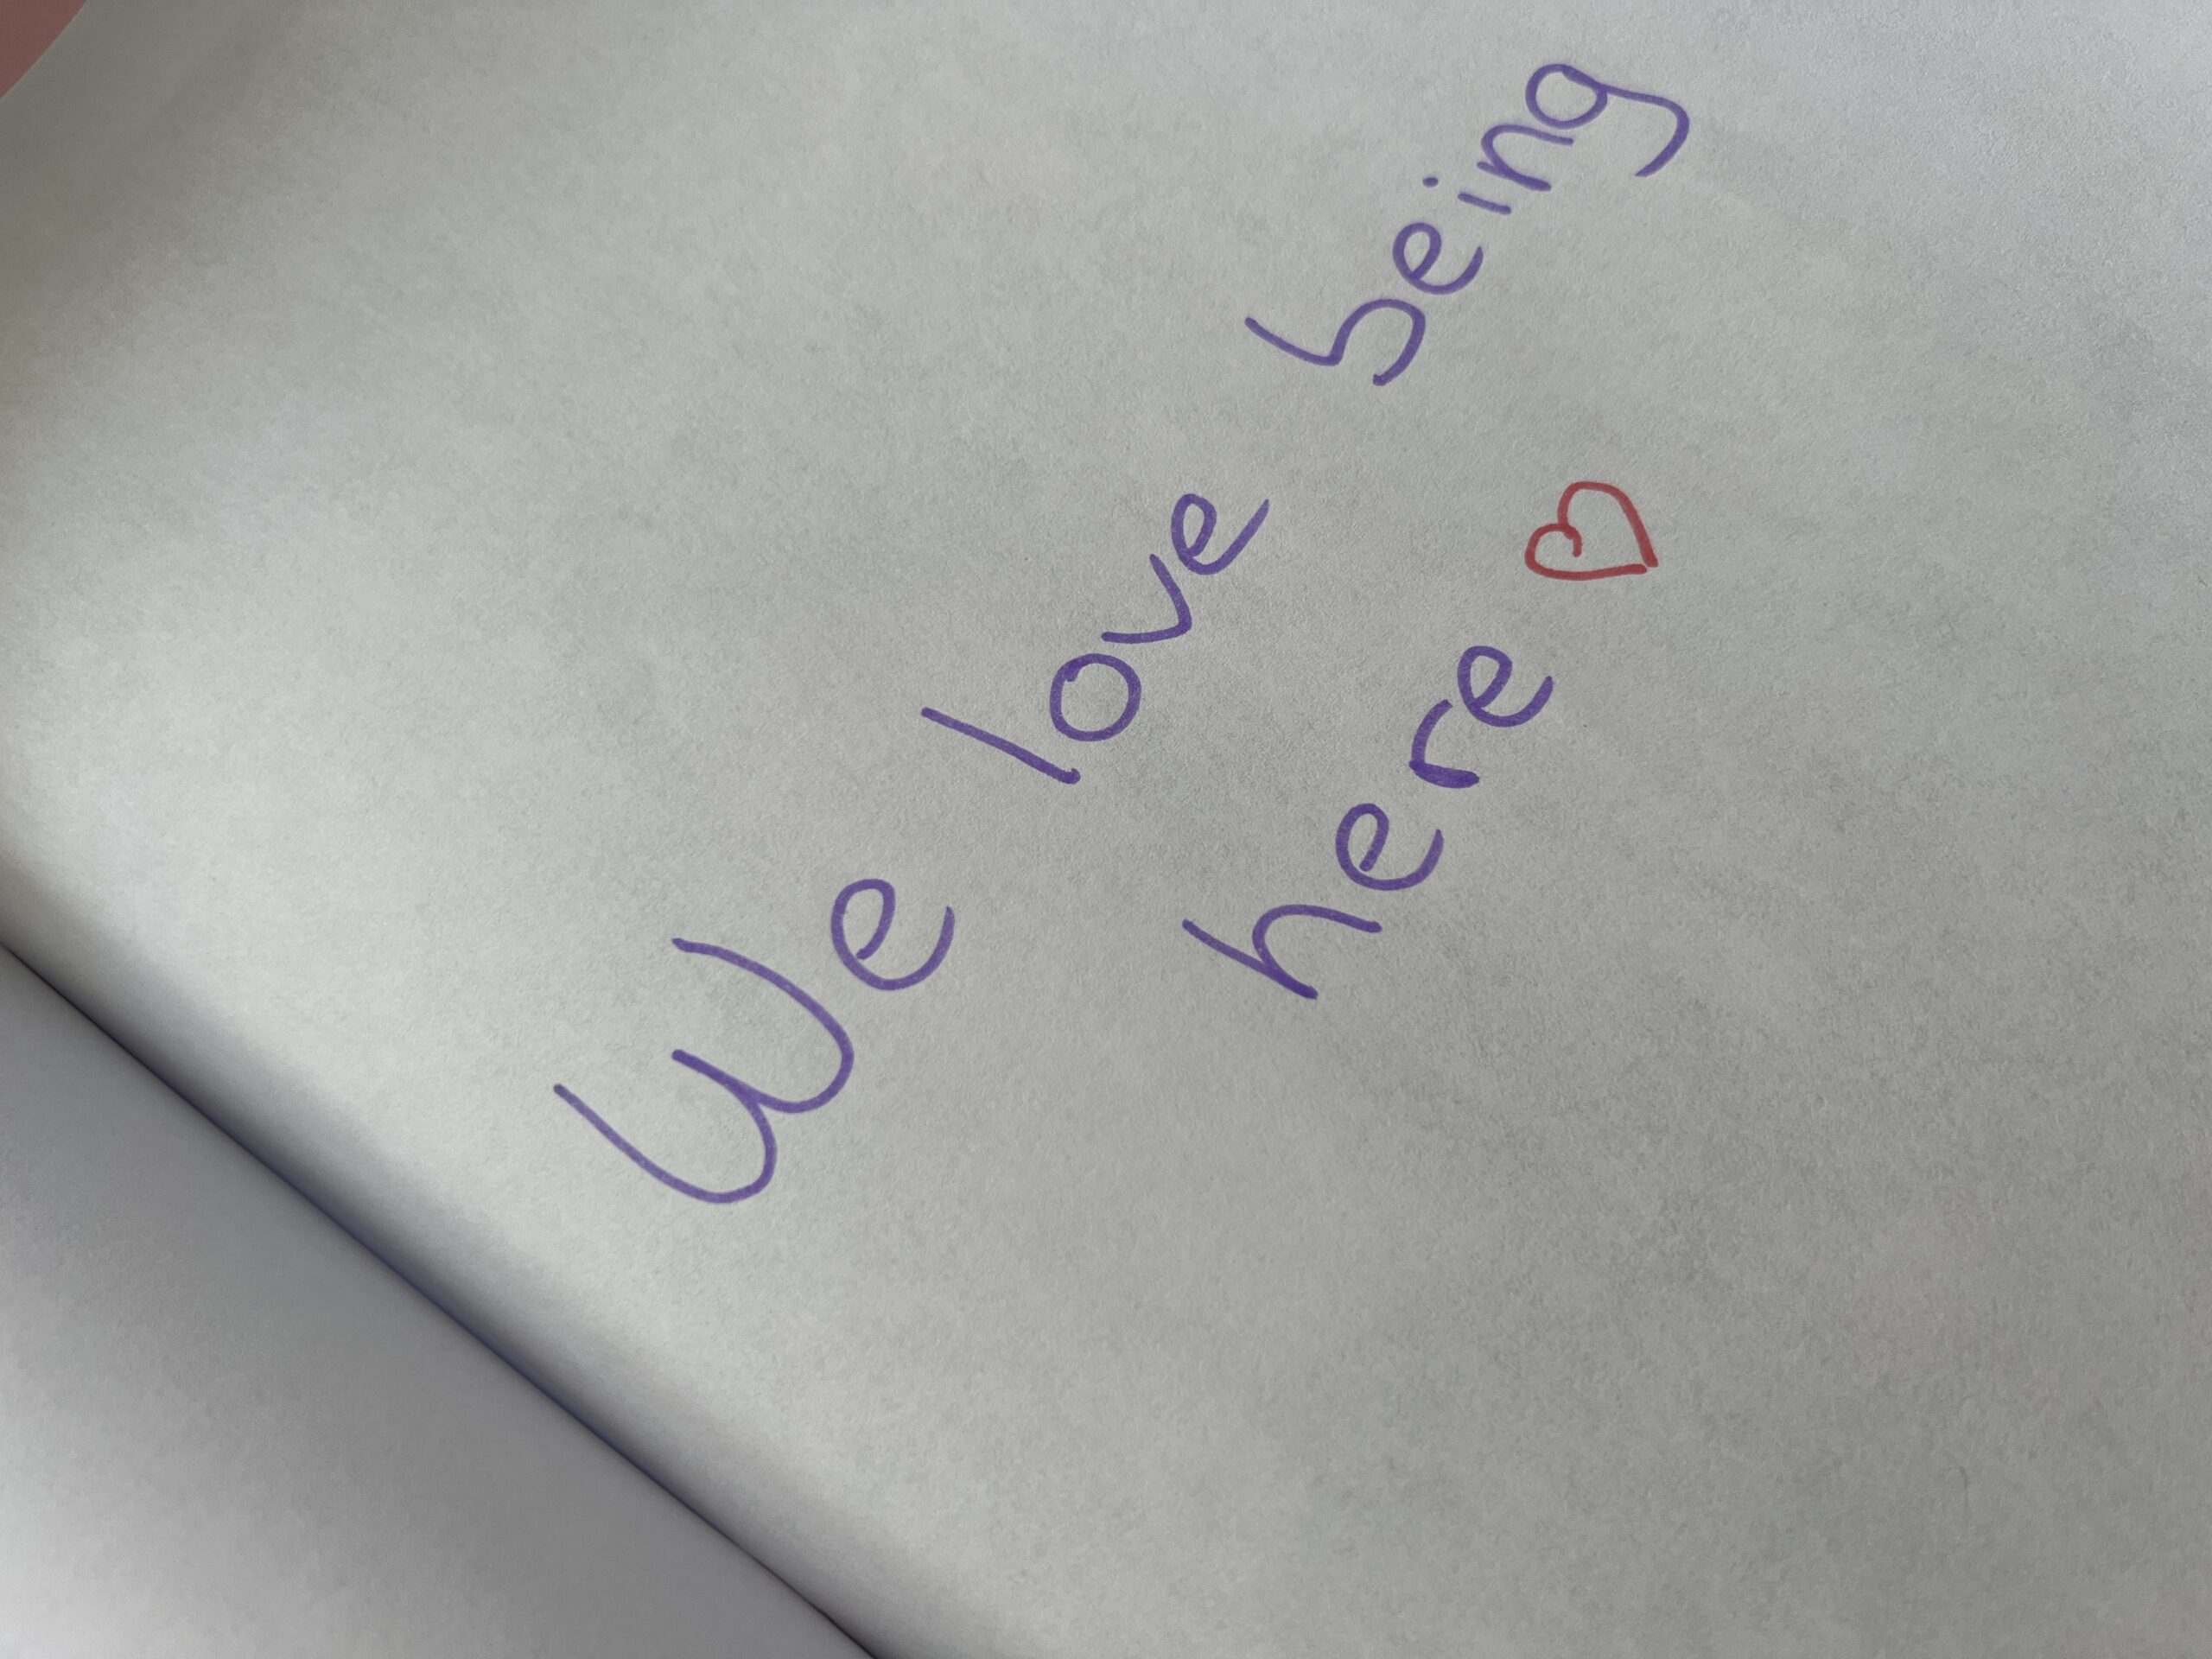 We love being
here ♡